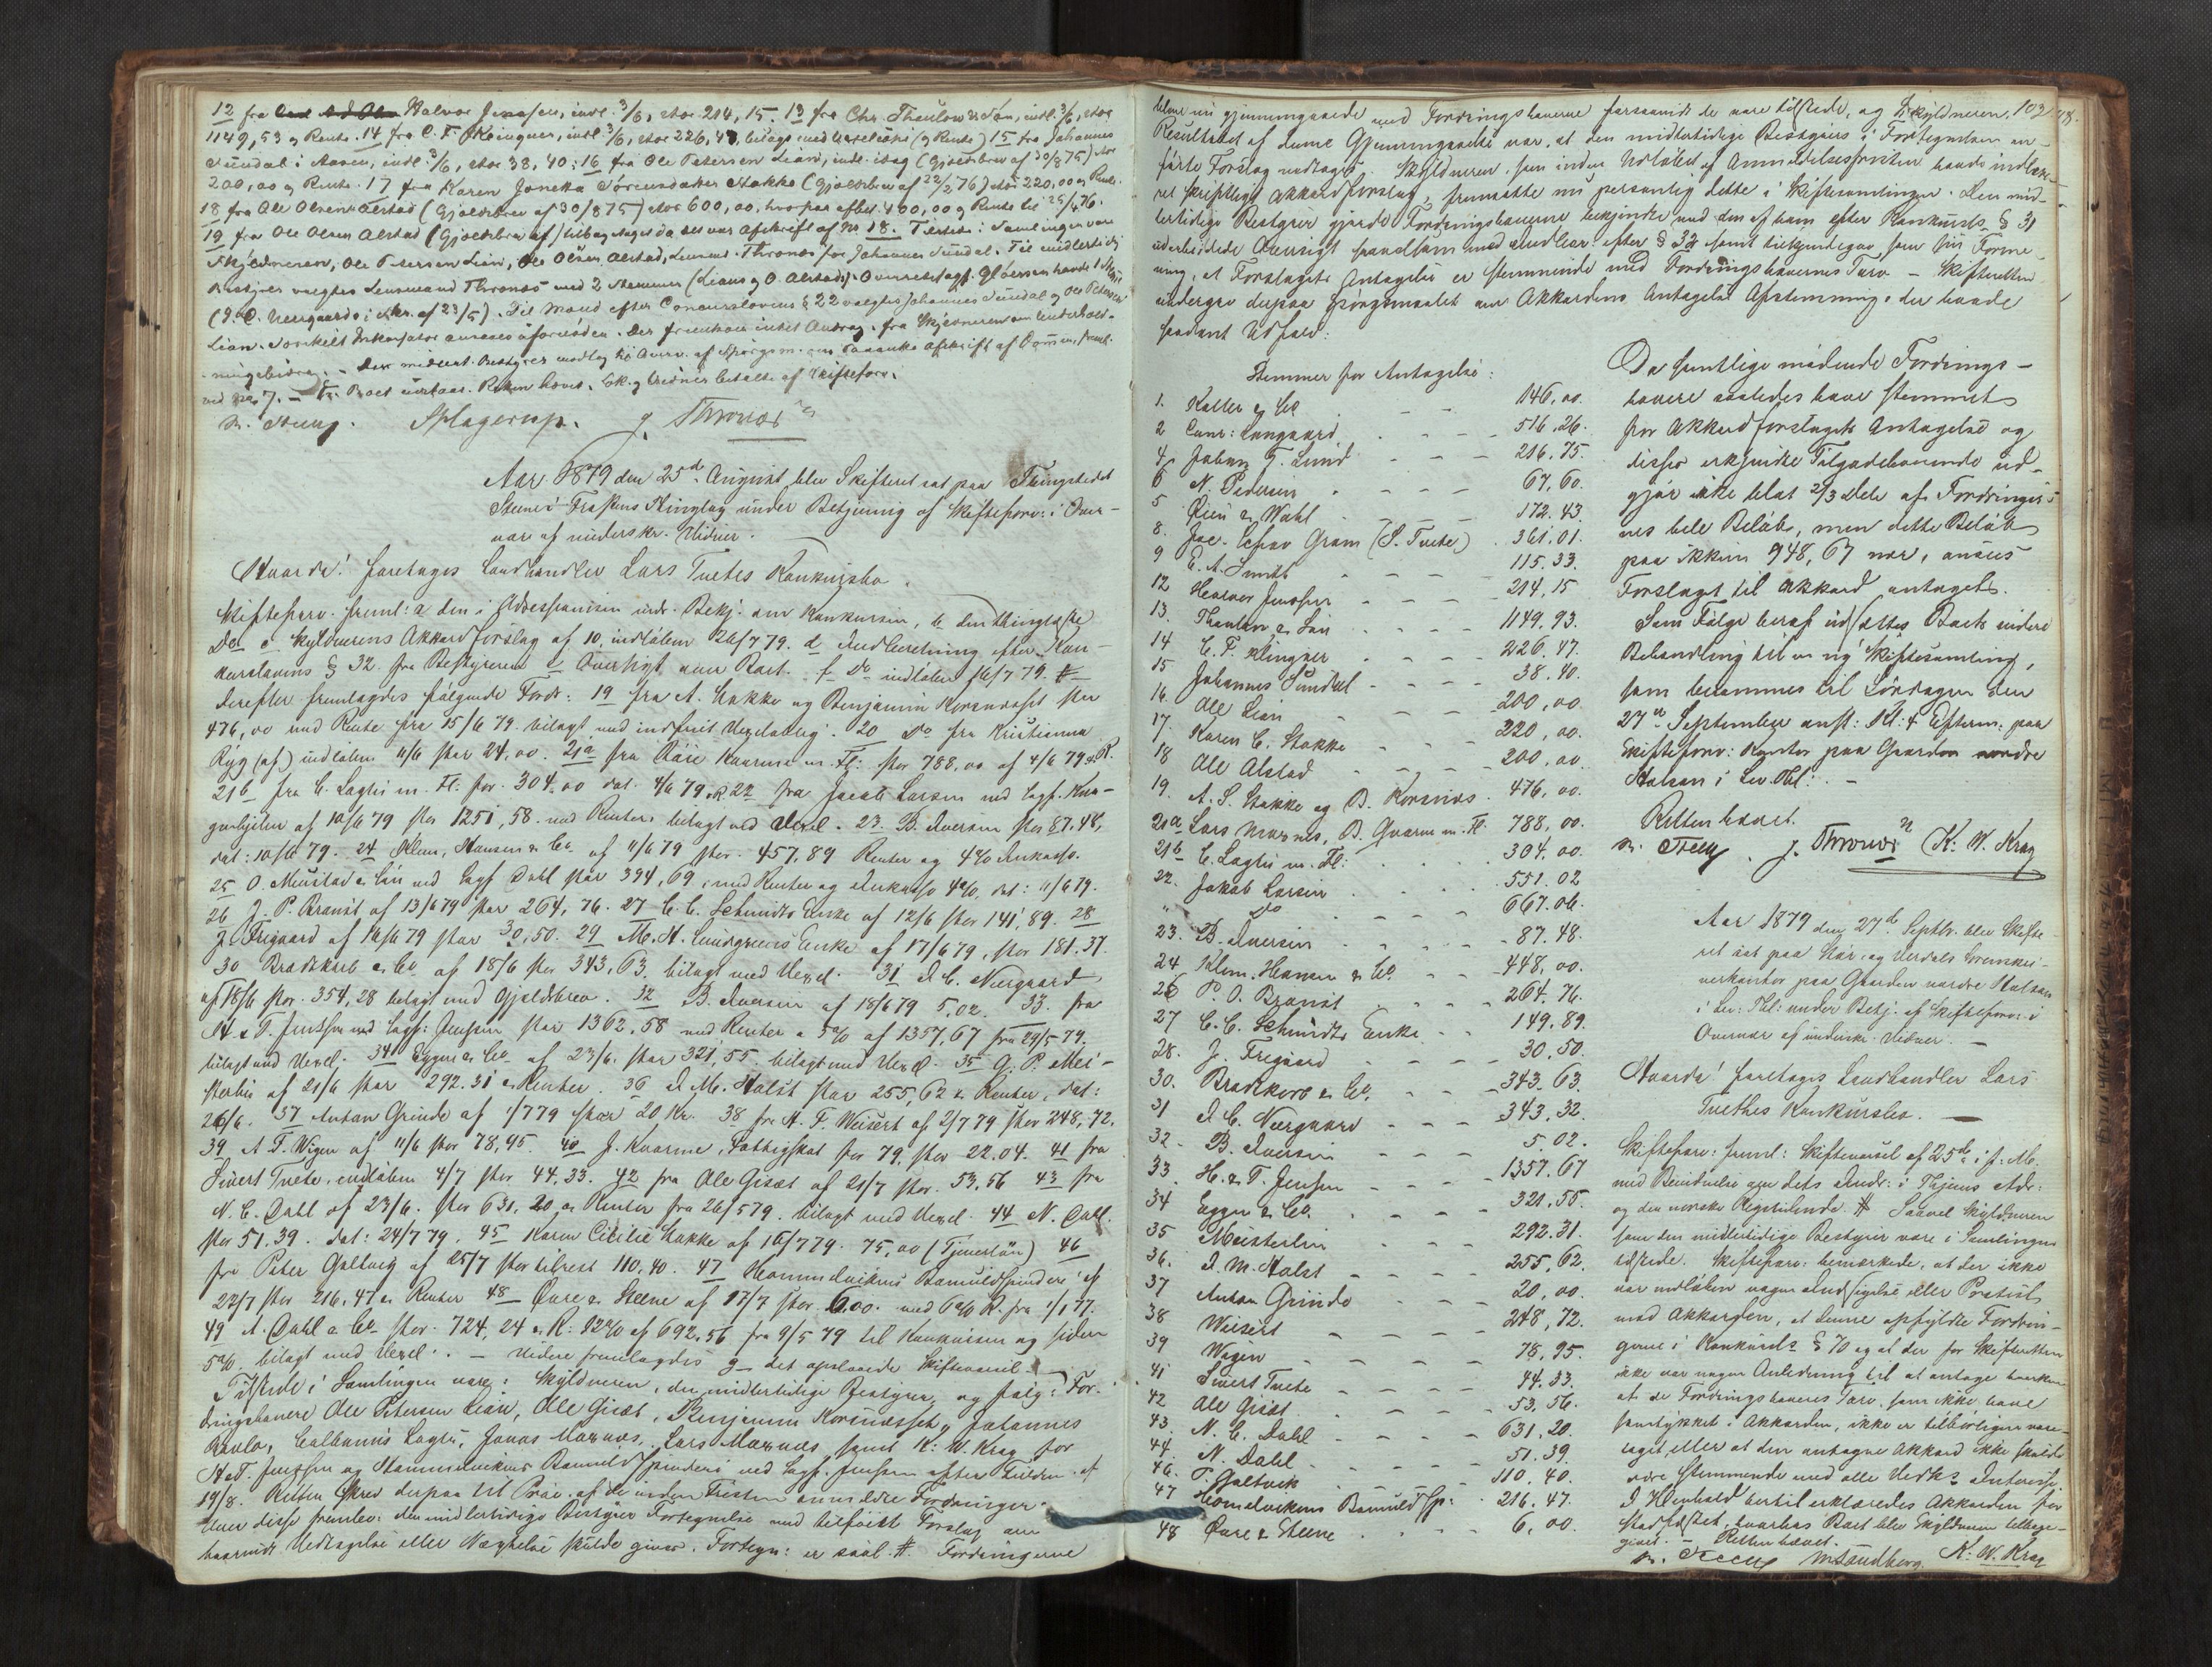 12 fra Halvor Jenssen, indl. 3/6, stor 214,15. 13 fra Chr. Thaulow & Søn, indl. 3/6, stor
1149,53 og Rente. 14 fra C. F. Klingner, indl. 3/6, stor 226,47, bilagt med (og Rente) 15 fra Johannes
Sundal i Aasen, indl. 3/6, stor 38,40. 16 fra Ole Petersen Lian, indl. idag (Gjældsbrev af 30/8 75) stor
200,00 og Rente. 17 fra Karen Joneta Sørensdatter Stakke (Gjældsbrev af 22/2 76) stor 220,00 og Rente.
18 fra Ole Olsen Alstad (Gjældsbrev af 30/8 75) stor 600,00, hvorpaa afbet. 400,00 og Rente til 25/4 76.
19 fra Ole Olsen Alstad (Gjældsbrev af) tilbagetaget da det var Afskrift af Nr 18. Tilstede i Samlingen vare
Skyldneren, Ole Petersen Lian, Ole Olsen Alstad, Lensmd. Thronæs for Johannes Sundal. Til midlertidig
Bestyrer valgtes Lensmand Thronæs med 2 Stemmer (Lians og O. Alstads). Overretssagf. Gløersen havde 1 Stemme
(I. C. Neergaards i Skr. af 23/5). Til Mand efter Concurslovens § 22 valgtes Johannes Sundal og Ole Petersen
Lian. Særskilt Inkassator ansaaes ufornøden. Der fremkom intet Andrag fra Skyldneren om Underhold-
ningsbidrag. Den midlert. Bestyrer modtog til
ved No 7. Boet udsat. Retten hævet. betalt af Skifteforv.
Slagerup. J. Thronæs
Aar 1879 den 25de August blev Skifteret sat paa Thingstedet
Steene i Frostens Thinglag under Betjening af Skifteforv: i Over-
vær af underskr. Vidner.
Hvorda! foretages Landhandler Lars Tuetes Konkursbo.
Skifteforv. freml: a den i Adresseavisen indr. Bekj. om Konkursen, b den thinglæste
Do c Skyldnerens Akkordforslag af 10, indløben 26/7 79. d Indberetning efter Kon-
kurslovens § 32 fra Bestyreren e Oversigt over Boet. f Do indløben 16/7 79. #
Derefter fremlagdes følgende Fordr: 19 fra A. Stakke og Benjamin Korsnæsset stor
476,00 med Rente fra 15/6 79 bilagt med indfriet Vexelobligt. 20 Do fra Kristianna
Ryg (af) indløben 11/6 stor 24,00. 21a fra Kaarene m. Fl: stor 788,00 af 4/6 79 & R.
21b fra C. Lagtu m. Fl. for 304,00 dat. 4/6 79 & R. 22 fra Jacob Larsen ved Sagf.
af 10/6 79 stor 1251,58 med Renter bilagt ved Vexel. 23. B. Iversen stor 87.48,
dat: 10/6 79. 24 Klem, Hansen & Co af 11/6 79 stor 457,89 Renter og 4% Inkasso.
25 O. Mustad & Søn ved Sagf Dahl stor 394,69, med Renter og Inkasso 4%, dat: 11/6 79.
26 J. P. Bransit af 13/6 79 stor 264,76. 27 C. C. Schmidts Enke af 12/6 stor 141,89. 28
J. Frigaard af 16/6 79 stor 30,50. 29 M. H. Lundgreens Enke af 17/6 79, stor 181.37.
30 Brodtkorb & Co af 18/6 stor 343,63. bilagt med Vexel. 31 I. C. Neergaard
af 18/6 stor 354,28 bilagt med Gjældsbrev. 32 B. Iversen af 18/6 79 5,02. 33. fra
H. & T. Jenssen ved Sagf: Jenssen stor 1362.58 med Renter a 5% af 1357,67 fra 29/5 79.
bilagt med Vexel. 34 Eggen & Co af 23/6. stor 321,55 bilagt med Vexel. 35 G. P. Mei-
sterlin af 21/6 stor 292.31 & Renter. 36 I. M. Stalst stor 255,62 & Renter, dat:
26/6. 37 Anton Grinde af 1/7 79 stor 20 Kr. 38 fra H. F. Weisert af 2/7 79 stor 248,72.
39 A. T. Wigen af 11/6 stor 78,95. 40 J. Kvarme, Fattigskat for 79, stor 22.04. 41 fra
Sivert Tuete, indløben 4/7 stor 44.33. 42 fra Ole Gisæt af 21/7 stor. 53,56 43 fra
N. C. Dahl af 23/6. stor 631,20 & Renter fra 26/5 79. bilagt med Vexel. 44 N. Dahl
stor 51.39. dat: 24/7 79. 45 Karen Cicilie Stakke af 16/7 79. 75,00 (Tjenerløn) 46
fra Peter Galtvik af 25/7 stor tilrest 110,40. 47 Hommelvikens Bomuldspinderi af
22/7 stor 216,47 & Renter 48 Øure & Steene af 17/7 stor 6.00. med 6% R. fra 1/1 77.
49 A. Dahl & Co stor 724,24 & R: 12% af 692.56 fra 9/5 79 til Konkursen og siden
5%. bilagt med Vexel. Videre fremlagdes g det opslaaede Skiftevarsel.
Tilstede i Samlingen vare: Skyldneren, den midlertidige Bestyrer, og følg: For-
dringshavere Ole Petersen Lian, Ole Gisæt, Benjamin Korsnæsset, Johannes
Lagtu, Jonas Moxnæs, Lars Moxnæs samt K: W. Krag for
H & T. Jenssen og Hommelvikens Bomuldspinderi ved Sagf. Jenssen efter Fuldm. af
19/8. Retten skred derpaa til Prøv. af de inden Fristen anmeldte Fordringer.
Over disse fremlev: den midlertidige Bestyrer Fortegnelse med tilføiet Forslag om
hvorvidt Vedtagelse eller Negtelse skulde gives. Fortegn: er saal. #. Fordringerne
103
blev nu gjennemgaaede med Fordringshaverne forsaavidt de vare tilstede, og Skyldneren.
Resultatet af denne Gjennemgaaelse var, at den midlertidige Bestyrers i Fortegnelsen an-
førte Forslag modtoges. Skyldneren, som inden Udløbet af Anmeldelsesfristen havde indleve-
ret skriftligt Akkordforslag, fremsatte nu personlig dette i Skiftesamlingen. Den mid-
lertidige Bestyrer gjorde Fordringshaverne bekjendte med den af ham efter Konkursl. § 31
udarbeidede Oversigt saavelsom med Indber. efter § 32 samt tilkjendegav som sin Forme-
ning, at Forslagets Antagelse er stemmende med Fordringshavernes Tarv. Skifteretten
undergav derpaa Spørgsmaalet om Akkordens Antagelse Afstemning, der havde
saadant Udfald:
Stemmer for Antagelse:
1. Koller & Co 146,00.
2 Conr: Langaard 516,26.
4 Johan F. Lund 216,75.
6 N. Pedersen 67,60.
5 Øien & Wahl 172.43.
8. Jac. Schav Gram (S. Tuete) 361,01.
9 E. A. Smith 115.33.
12 Halvor Jenssen 214,15
13. Thaulow & Søn 1149,93.
14 C. F. Klingner 226.47.
15 Johannes Sundal 38.40.
16. Ole Lian 200,00.
17. Karen C. Stakke 220,00.
18 Ole Alstad 200,00
19. A. S. Stakke og B. Korsnæs 476,00.
21a Lars Moxnes, B. Kvarm m. Fl. 788,00.
21b C. Lagtu m. Fl: 304,00.
22. Jakob Larsen 551.02
" Do 667.06.
23. B. Iversen 87.48.
24 Klem. Hansen & Co. 448,00.
26 P. O. Bransit 264.76.
27 C. C. Schmidts Enke 149.89.
28. J. Fregaard 30.50.
30. Brodtkorb & Co. 343.63.
31 I. C. Neergaard 343.32.
32. B. Iversen 5.02.
33. H. & T. Jenssen 1357.67
34 Eggen & Co. 321.55.
35 Meisterlin 292.31.
36. I. M. Stalst 255,62.
37 Anton Grinde 20,00.
38 Weisert 248,72.
39 Wigen 78,95.
41 Sivert Tuete 44.33.
42 Ole Gisæt 53,56.
43. N. C. Dahl 631.20.
44. N. Dahl 51.39.
46. P. Galtvik 110.40.
47 Homelvikens Bomuldsp: 216.47.
48 Øure & Steene 6,00.
Da samtlige mødende Fordrings-
havere saaledes have stemmet
for Akkordforslagets Antagelse og
disses erkjendte Tilgodehavende ud-
gjør ikke blot 2/3 Dele af Fordringer-
nes hele Beløb, men dette Beløb
paa ikkun 948,67 nær, ansees
Forslaget til Akkord antaget.
Som Følge heraf udsættes Boets videre
Behandling til en ny Skiftesamling,
som berammes til Lørdagen den
27de September anst: Kl: 4 Efterm: paa
Skifteforv: Kontor paa Gaarden nordre
Stalsan i Lev. Thl:.
Retten hævet.
J. Thronæs K: W. Krag
Aar 1879 den 27de Septbr. blev Skifte-
ret sat paa Stør- og Verdals Sorenskri-
verkontor paa Gaarden nordre Stalsan
i Lev: Thl: under Betj. af Skifteforv: i
Overvær af underskr. Vidner.
Hvorda! foretages Landhandler Lars
Tuethes Konkursbo.
Skifteforv: freml: Skiftevarsel af 25de i f: M.
med Bevidnelse om dets Indr: i Thjems Adr:
og den norske Rigstidende. # Saavel Skyldneren
som den midlertidige Bestyrer vare i Samlingen
tilstede. Skifteforv: bemærkede, at der ikke
var indløben nogen Indsigelse eller Protest
mod Akkorden, at denne opfyldte Fordrin-
gerne i Konkursl. § 70 og at der for Skifteretten
ikke var nogen Anledning til at antage hverken
at de Fordringshaveres Tarv, som ikke have
samtykket i Akkorden, ikke er tilbørligen vare-
taget, eller at den antagne Akkord ikke skulde
være stemmende med alle Vedk: Interesse.
I Henhold hertil erklæredes Akkorden for
stadfæstet, hvorhos Boet blev Skyldneren tilbage-
givet. Retten hævet.
M Sandberg. K: W. Krag